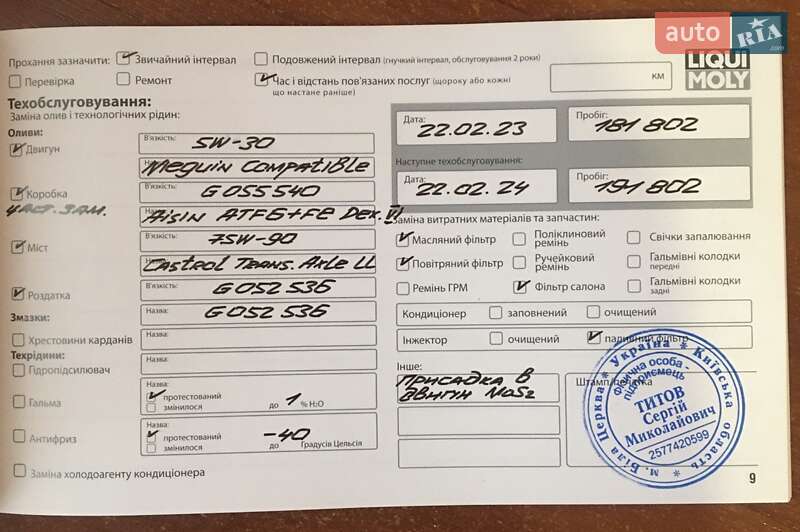 auto RIA.com
LIQUI MOLY
Прохання зазначити: Звичайний інтервал Подовжений інтервал (гнучкий інтервал, обслуговування 2 роки)
Перевірка Ремонт Час і відстань пов'язаних послуг (щороку або кожні
що настане раніше) км
Техобслуговування:
Заміна олив і технологічних рідин:
Оливи:
Двигун
В'язкість: 5W-30
Meguin Compatible
Коробка
В'язкість: G 055 540
част. зам.
Aisin ATF6+FE Dex. VI
Міст
В'язкість: 75W-90
Castrol Trans. Axle LL
Роздатка
В'язкість: G 052 536
Назва: G 052 536
Змазки:
Хрестовини карданів
Назва:
Техрідини:
Гідропідсилювач
Назва:
Гальма
Назва:
протестований
змінилося до 1 % H2O
Антифриз
Назва:
протестований
змінилося до -40 Градусів Цельсія
Заміна холодоагенту кондиціонера
Дата: 22.02.23 Пробіг: 181 802
Наступне техобслуговування:
Дата: 22.02.24 Пробіг: 191 802
Заміна витратних матеріалів та запчастин:
Масляний фільтр Поліклиновий ремінь Свічки запалювання
Повітряний фільтр Ручейковий ремінь Гальмівні колодки передні
Ремінь ГРМ Фільтр салона Гальмівні колодки задні
Кондиціонер заповнений очищений
Інжектор очищений паливний фільтр
Інше:
Присадка в
двигин MoS2
Штамп/печатка
Україна * Київська область * м. Біла Церква *
Фізична особа -
підприємець
ТИТОВ
Сергій
Миколайович
2577420599
9